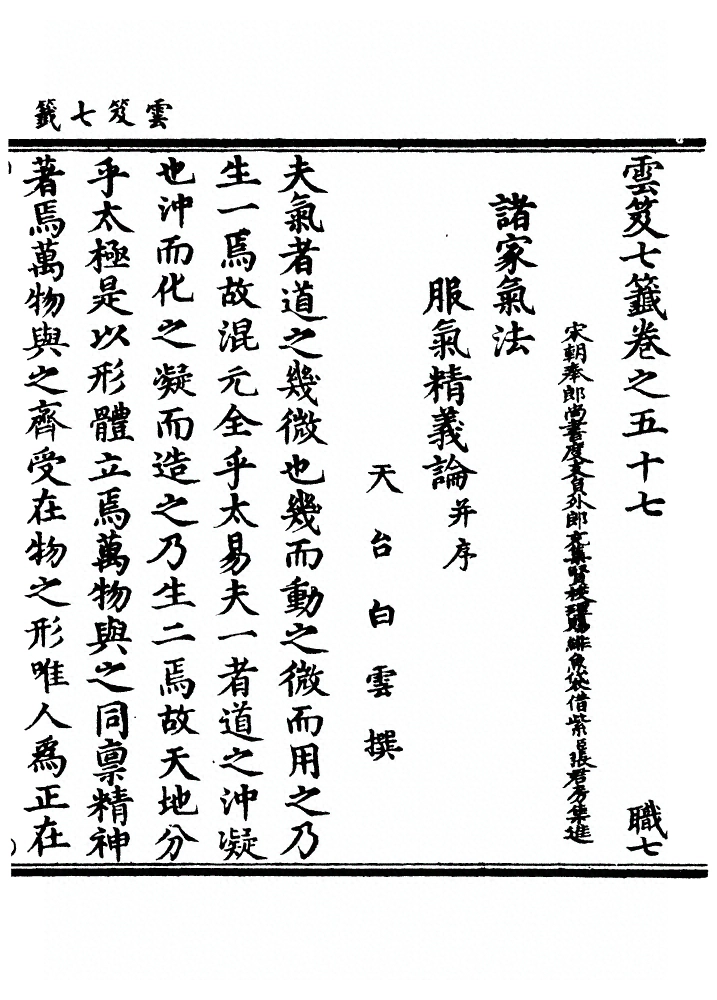 雲笈七籤
雲笈七籤卷之五十七 職七
宋朝奉郎尚書度支員外郎充集賢校理賜緋魚袋借紫臣張君房集進
諸家氣法
服氣精義論并序
天台白雲撰
夫氣者道之幾微也幾而動之微而用之乃
生一焉故混元全乎太易夫一者道之沖凝
也沖而化之凝而造之乃生二焉故天地分
乎太極是以形體立焉萬物與之同稟精神
著焉萬物與之齊受在物之形唯人爲正在